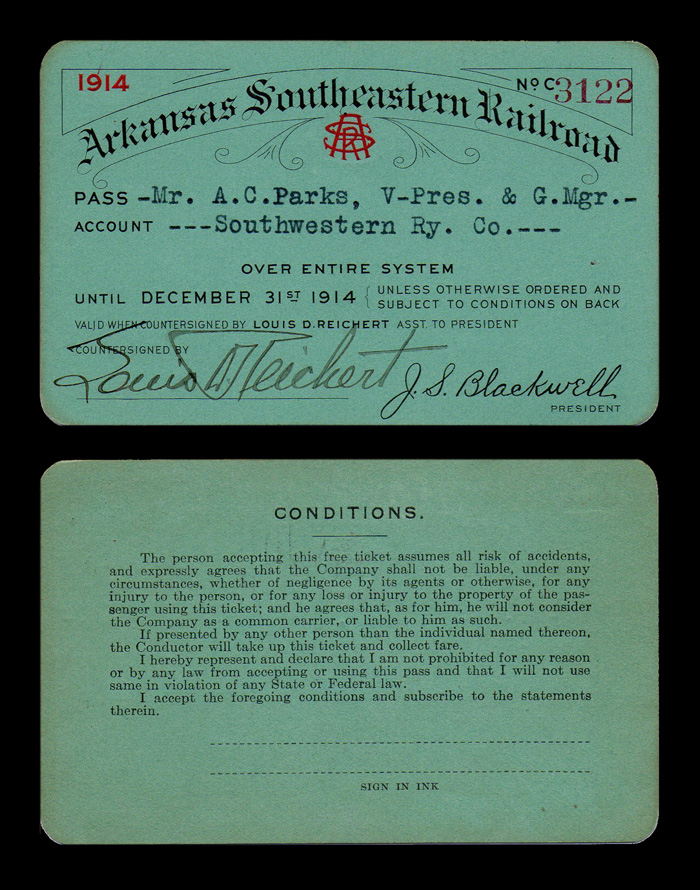 1914
Nº C 3122
Arkansas Southeastern Railroad
PASS -Mr. A.C.Parks, V-Pres. & G.Mgr.-
ACCOUNT ---Southwestern Ry. Co.---
OVER ENTIRE SYSTEM
UNTIL DECEMBER 31ST 1914 { UNLESS OTHERWISE ORDERED AND
SUBJECT TO CONDITIONS ON BACK
VALID WHEN COUNTERSIGNED BY LOUIS D. REICHERT ASST. TO PRESIDENT
COUNTERSIGNED BY
Louis D Reichert
J. S. Blackwell
PRESIDENT
CONDITIONS.
The person accepting this free ticket assumes all risk of accidents,
and expressly agrees that the Company shall not be liable, under any
circumstances, whether of negligence by its agents or otherwise, for any
injury to the person, or for any loss or injury to the property of the pas-
senger using this ticket; and he agrees that, as for him, he will not consider
the Company as a common carrier, or liable to him as such.
If presented by any other person than the individual named thereon,
the Conductor will take up this ticket and collect fare.
I hereby represent and declare that I am not prohibited for any reason
or by any law from accepting or using this pass and that I will not use
same in violation of any State or Federal law.
I accept the foregoing conditions and subscribe to the statements
therein.
SIGN IN INK